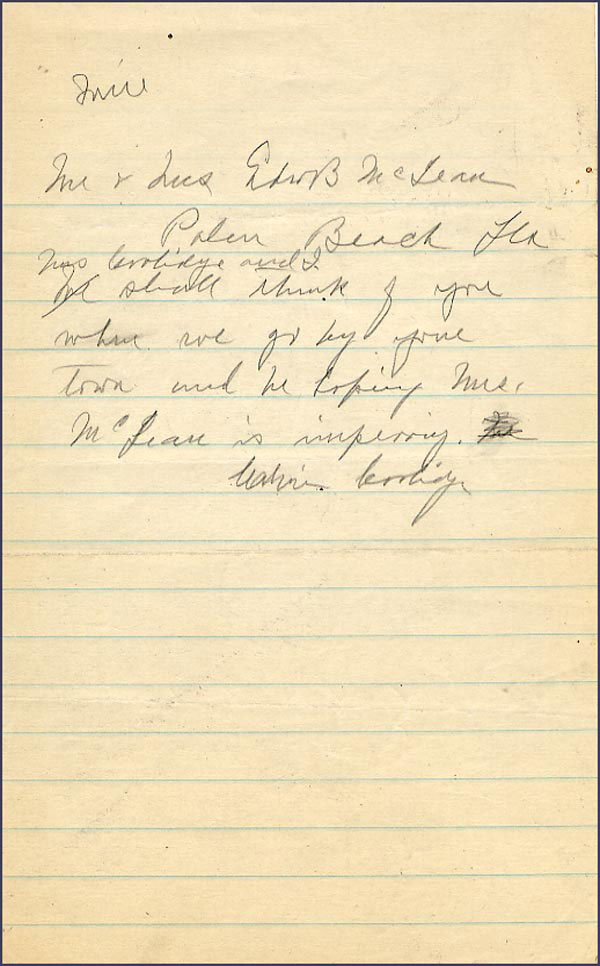 Mr & Mrs Edw B McLean
Palm Beach Fla
Mrs Coolidge and I
We shall think of you
when we go by your
town and be hoping Mrs.
McLean is improving.
Calvin Coolidge